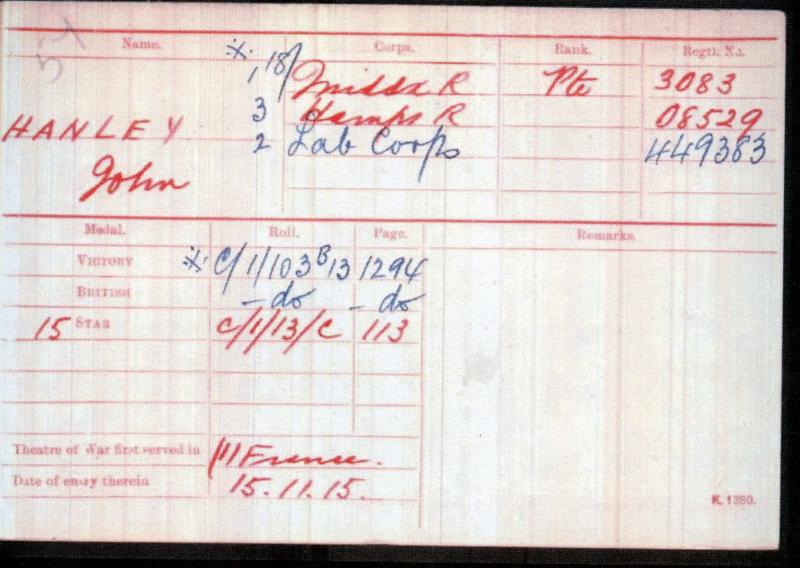 54
Name. Corps. Rank. Regtl. No.
1 18/ Middx R Pte 3083
3 Hamps R 08529
HANLEY 2 Lab Corps 449383
John
Medal. Roll. Page. Remarks.
VICTORY C/1/103 B13 1294
BRITISH -do -do
15 STAR C/1/13/C 113
Theatre of War first served in (1) France.
Date of entry therein 15.11.15.
K. 1380.